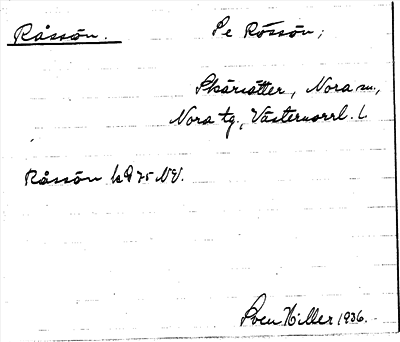 Råssön.
Se Rössön;
Skärsätter, Nora sn.,
Nora tg., Västernorrl. L
Råssön kd 75 NV.
Sven Hiller 1936.